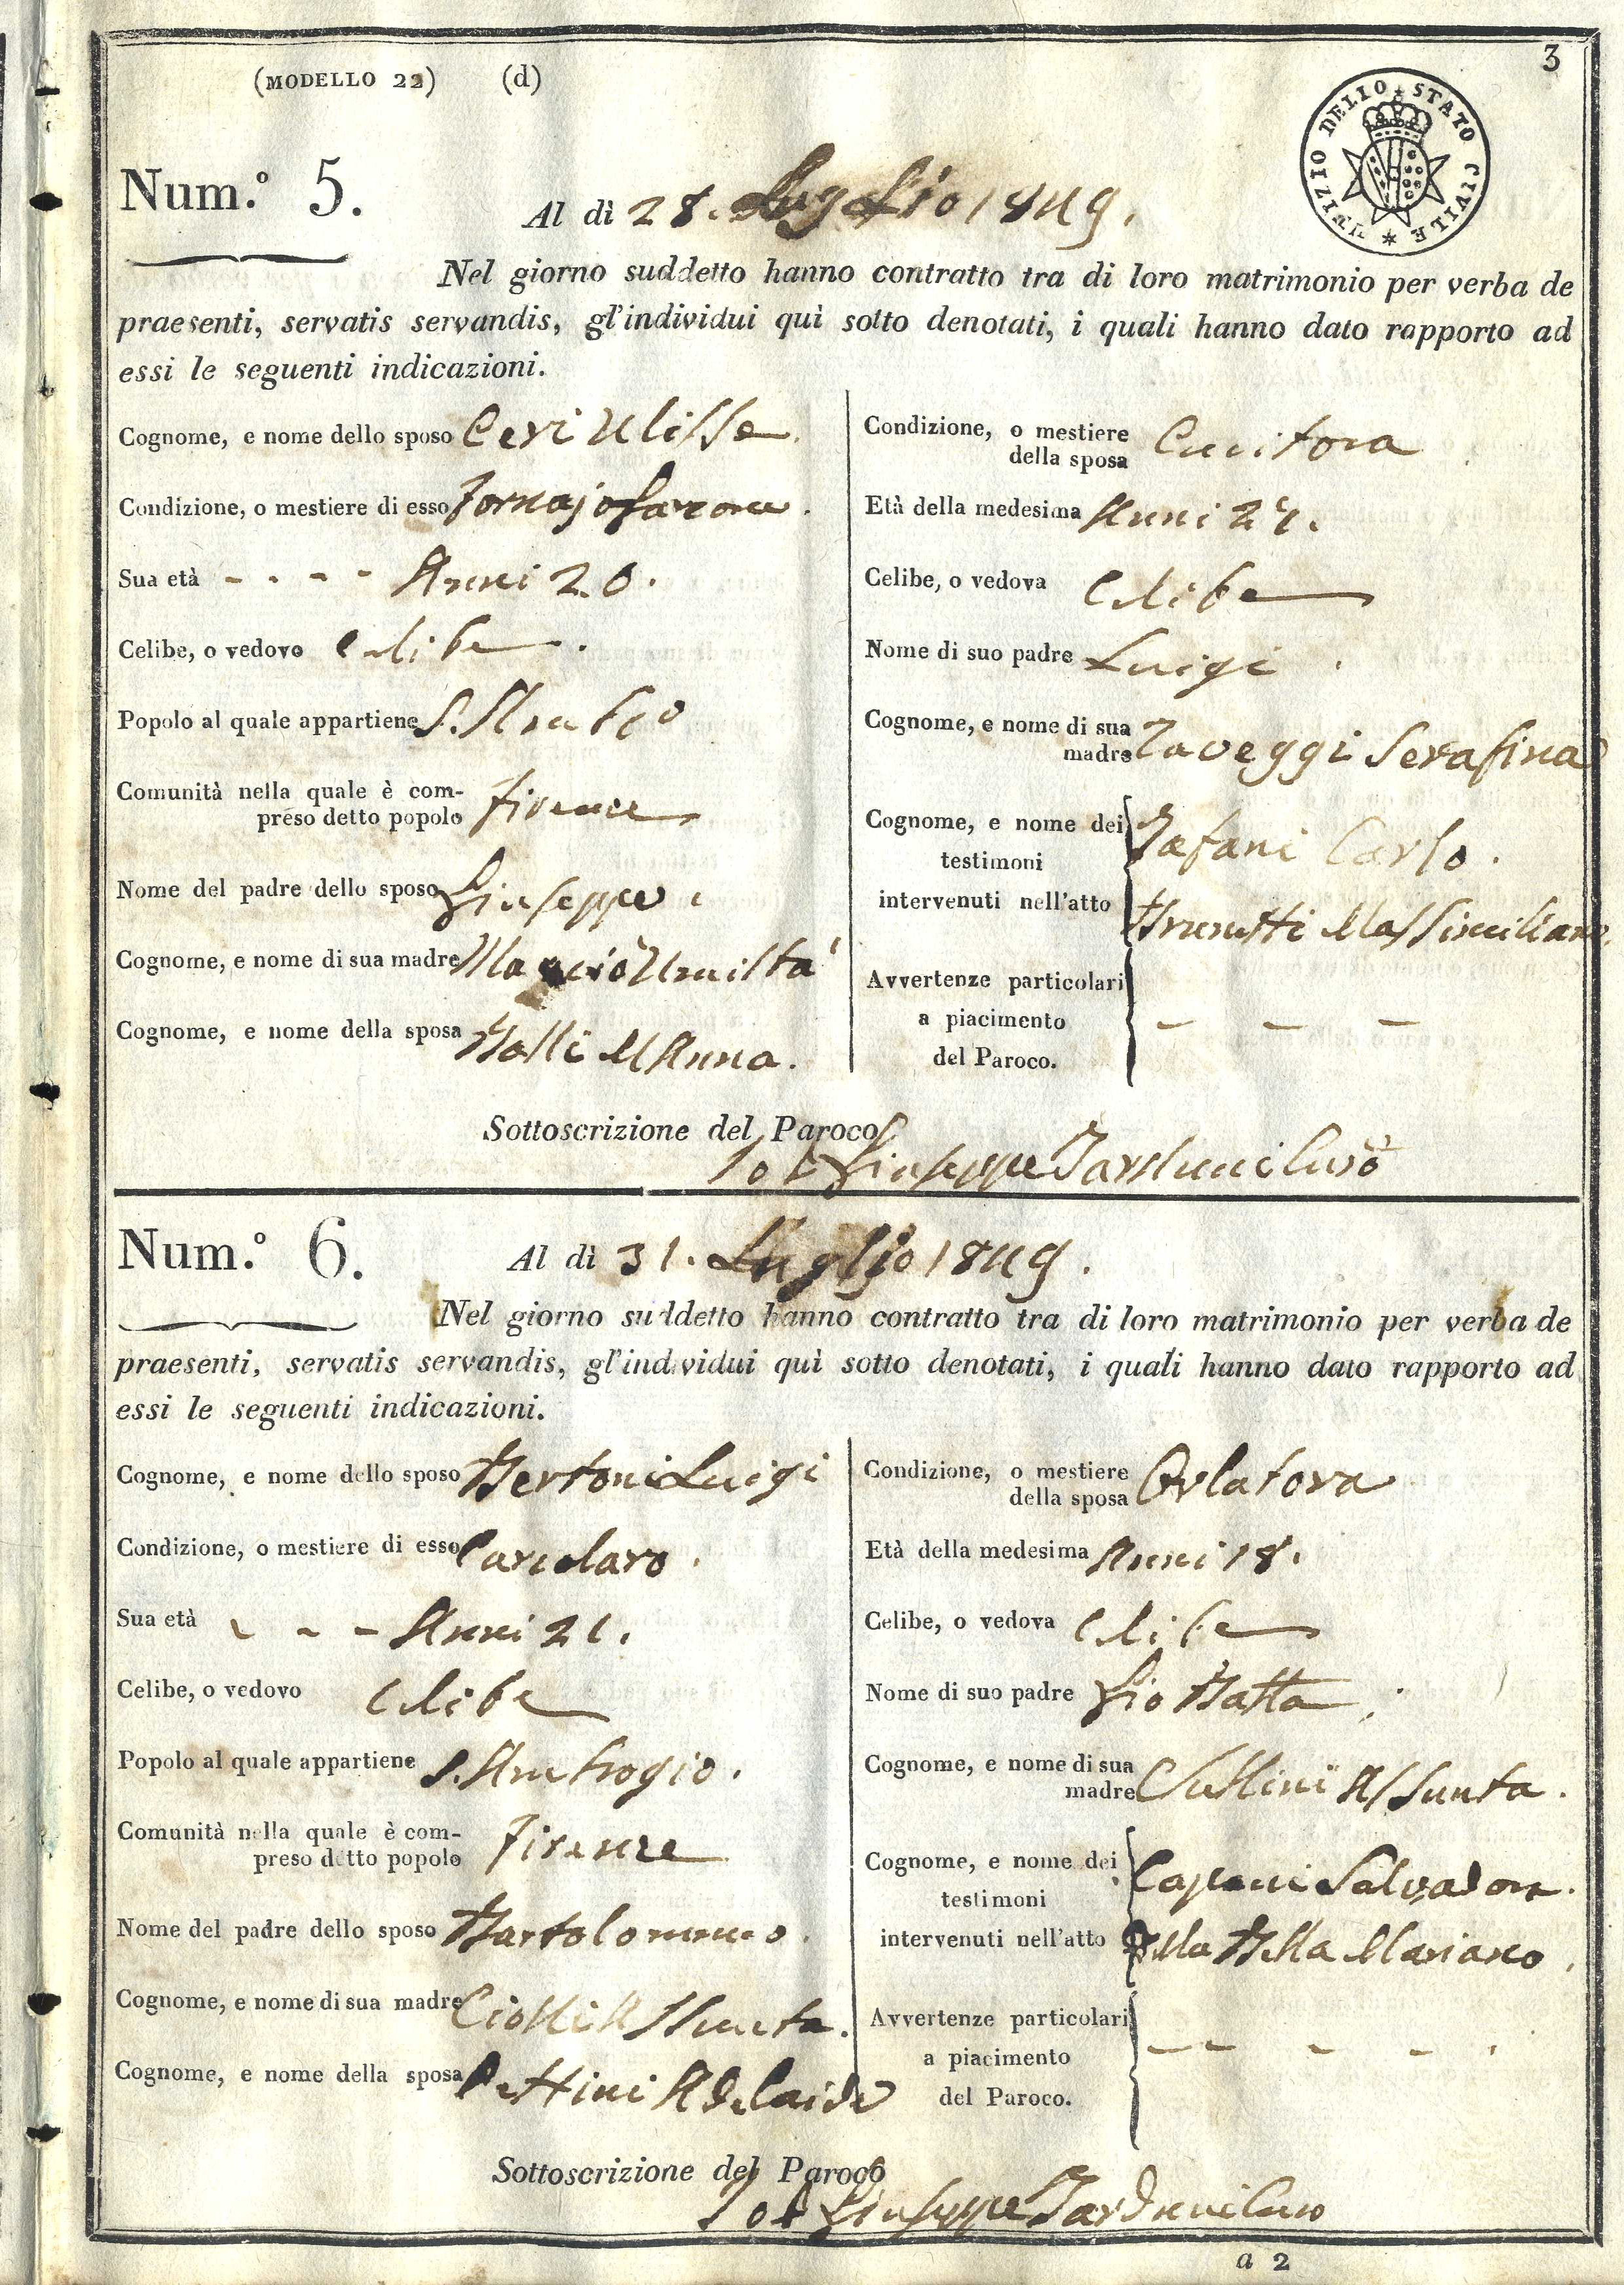 3
(MODELLO 22) (d)
UFIZIO DELLO STATO CIVILE
Num.° 5.
Al dì 28. Luglio 1849.
Nel giorno suddetto hanno contratto tra di loro matrimonio per verba de
praesenti, servatis servandis, gl'individui quì sotto denotati, i quali hanno dato rapporto ad
essi le seguenti indicazioni.
Cognome, e nome dello sposo Ceri Ulisse
Condizione, o mestiere di esso Fornajo
Sua età - - - - Anni 20.
Celibe, o vedovo Celibe
Popolo al quale appartiene S.
Comunità nella quale è com-
preso detto popolo Firenze
Nome del padre dello sposo Giuseppe
Cognome, e nome di sua madre Umiltà
Cognome, e nome della sposa Balli M Anna.
Condizione, o mestiere
della sposa Cucitora
Età della medesima Anni
Celibe, o vedova Celibe
Nome di suo padre Luigi
Cognome, e nome di sua
madre Taveggi Serafina
Cognome, e nome dei
testimoni
intervenuti nell'atto
Tafani Carlo.
Brunetti Massimiliano
Avvertenze particolari
a piacimento
del Paroco.
- - -
Sottoscrizione del Paroco
Giuseppe
Num.° 6.
Al dì 31. Luglio 1849.
Nel giorno suddetto hanno contratto tra di loro matrimonio per verba de
praesenti, servatis servandis, gl'individui quì sotto denotati, i quali hanno dato rapporto ad
essi le seguenti indicazioni.
Cognome, e nome dello sposo Bertoni Luigi
Condizione, o mestiere di esso
Sua età - - - Anni 21.
Celibe, o vedovo Celibe
Popolo al quale appartiene S. Ambrogio.
Comunità nella quale è com-
preso detto popolo Firenze
Nome del padre dello sposo Bartolommeo.
Cognome, e nome di sua madre Ciolli Assunta.
Cognome, e nome della sposa Pettini Adelaide
Condizione, o mestiere
della sposa Orlatora
Età della medesima Anni 18.
Celibe, o vedova Celibe
Nome di suo padre Gio Batta
Cognome, e nome di sua
madre Assunta.
Cognome, e nome dei
testimoni
intervenuti nell'atto
Capani Salvadore.
Della Bella Mariano
Avvertenze particolari
a piacimento
del Paroco.
- - - -
Sottoscrizione del Paroco
Giuseppe
a 2